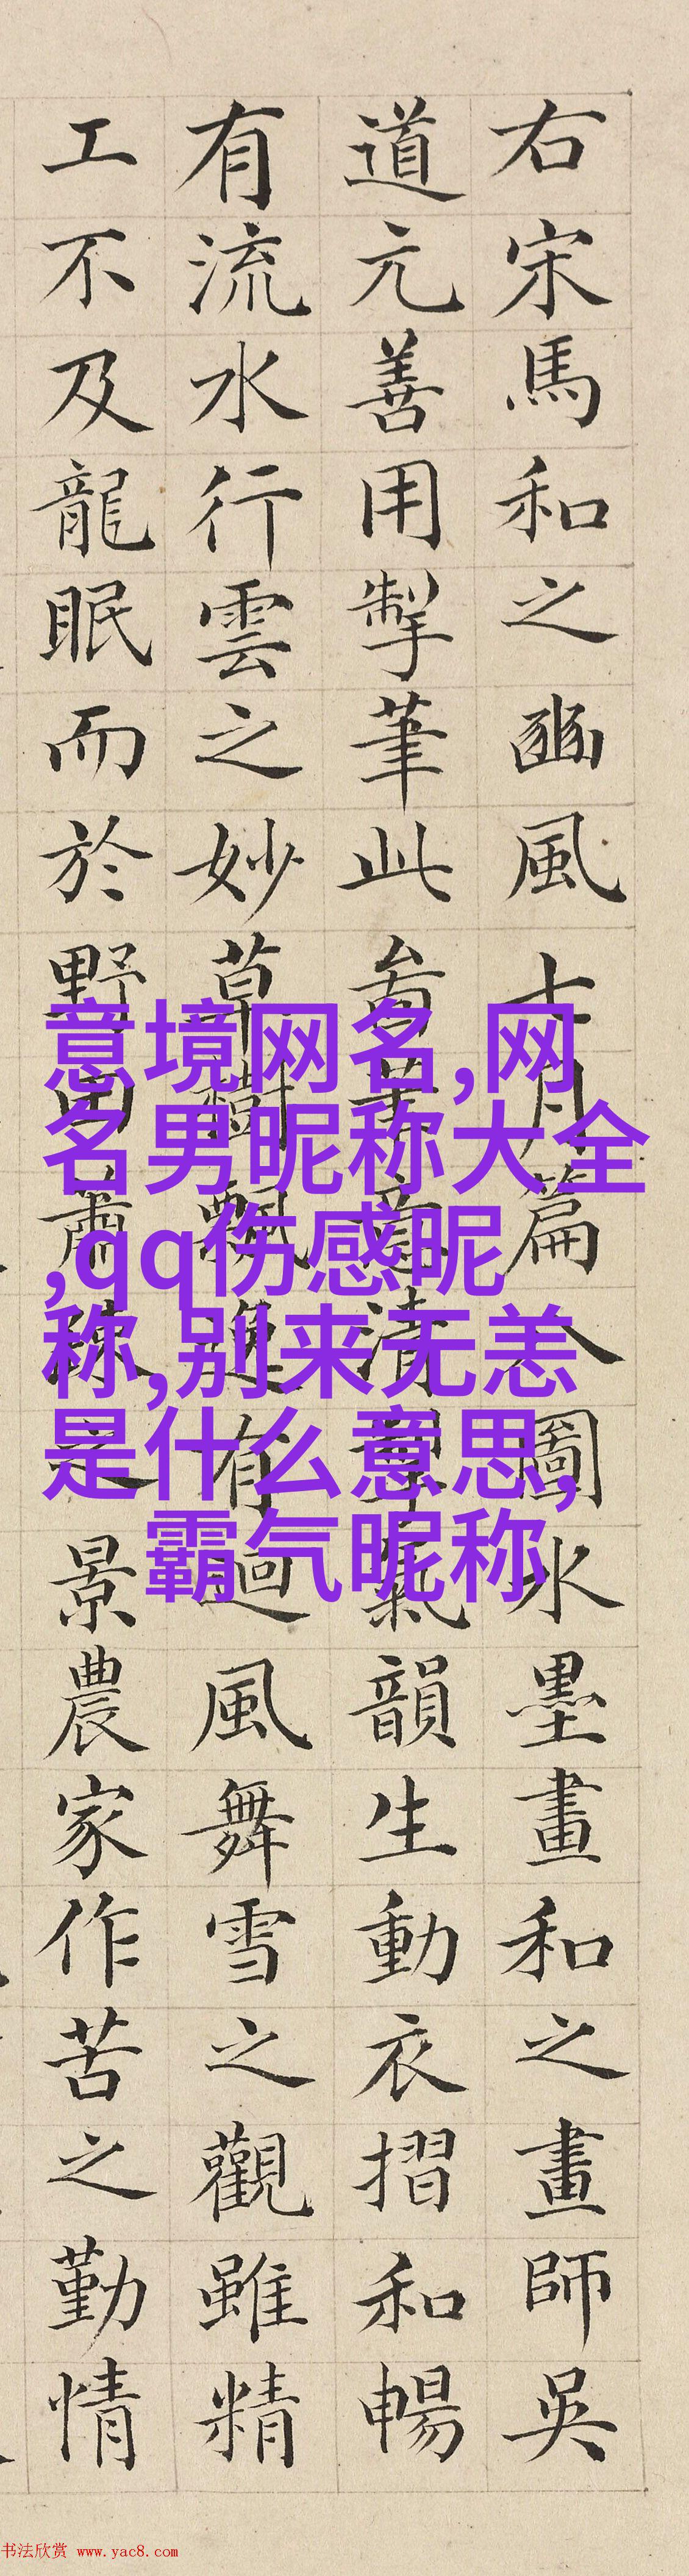 右宋馬和之豳風七月篇八圖水墨畫和之畫師吳
道元善用掣筆此意清氣韻生動衣摺和暢
有流水行雲之妙草樹飄逸有迴風舞雪之觀雖精
工不及龍眠而於野田蕭疎之景農家作苦之勤情
意境网名,网
名男昵称大全
,qq伤感昵
称,别来无恙
是什么意思,
霸气昵称
书法欣赏 www.yac8.com